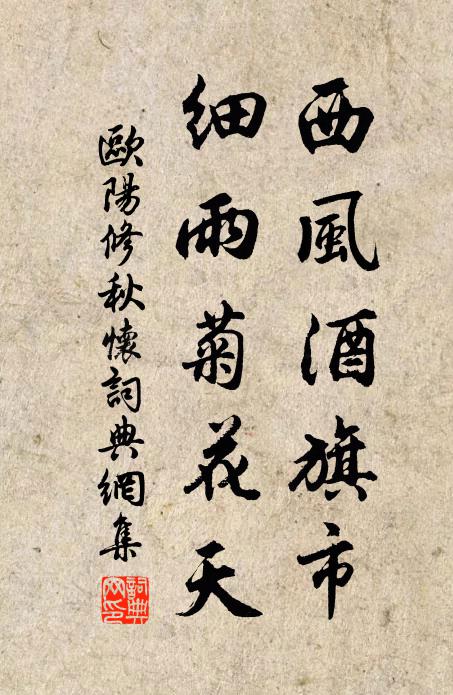 西風酒旗市
細雨菊花天
歐陽修秋懷詞典網集
詞典
网印